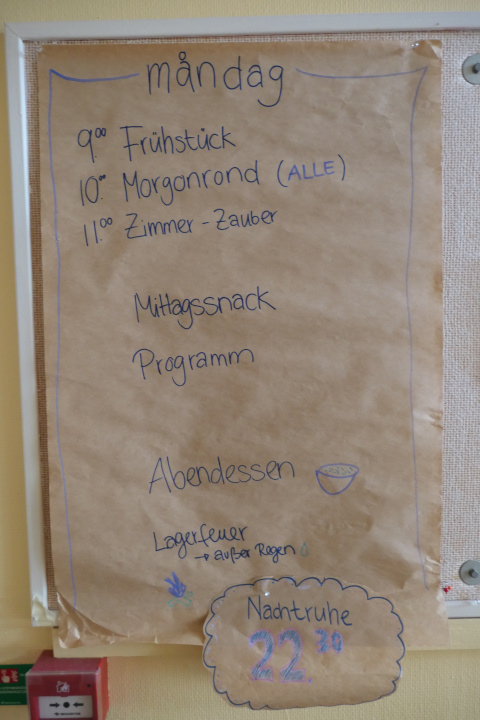 måndag
9.00 Frühstück
10.00 Morgonrond (ALLE)
11.00 Zimmer-Zauber
Mittagssnack
Programm
Abendessen
Lagerfeuer
→ außer Regen
Nachtruhe
22.30